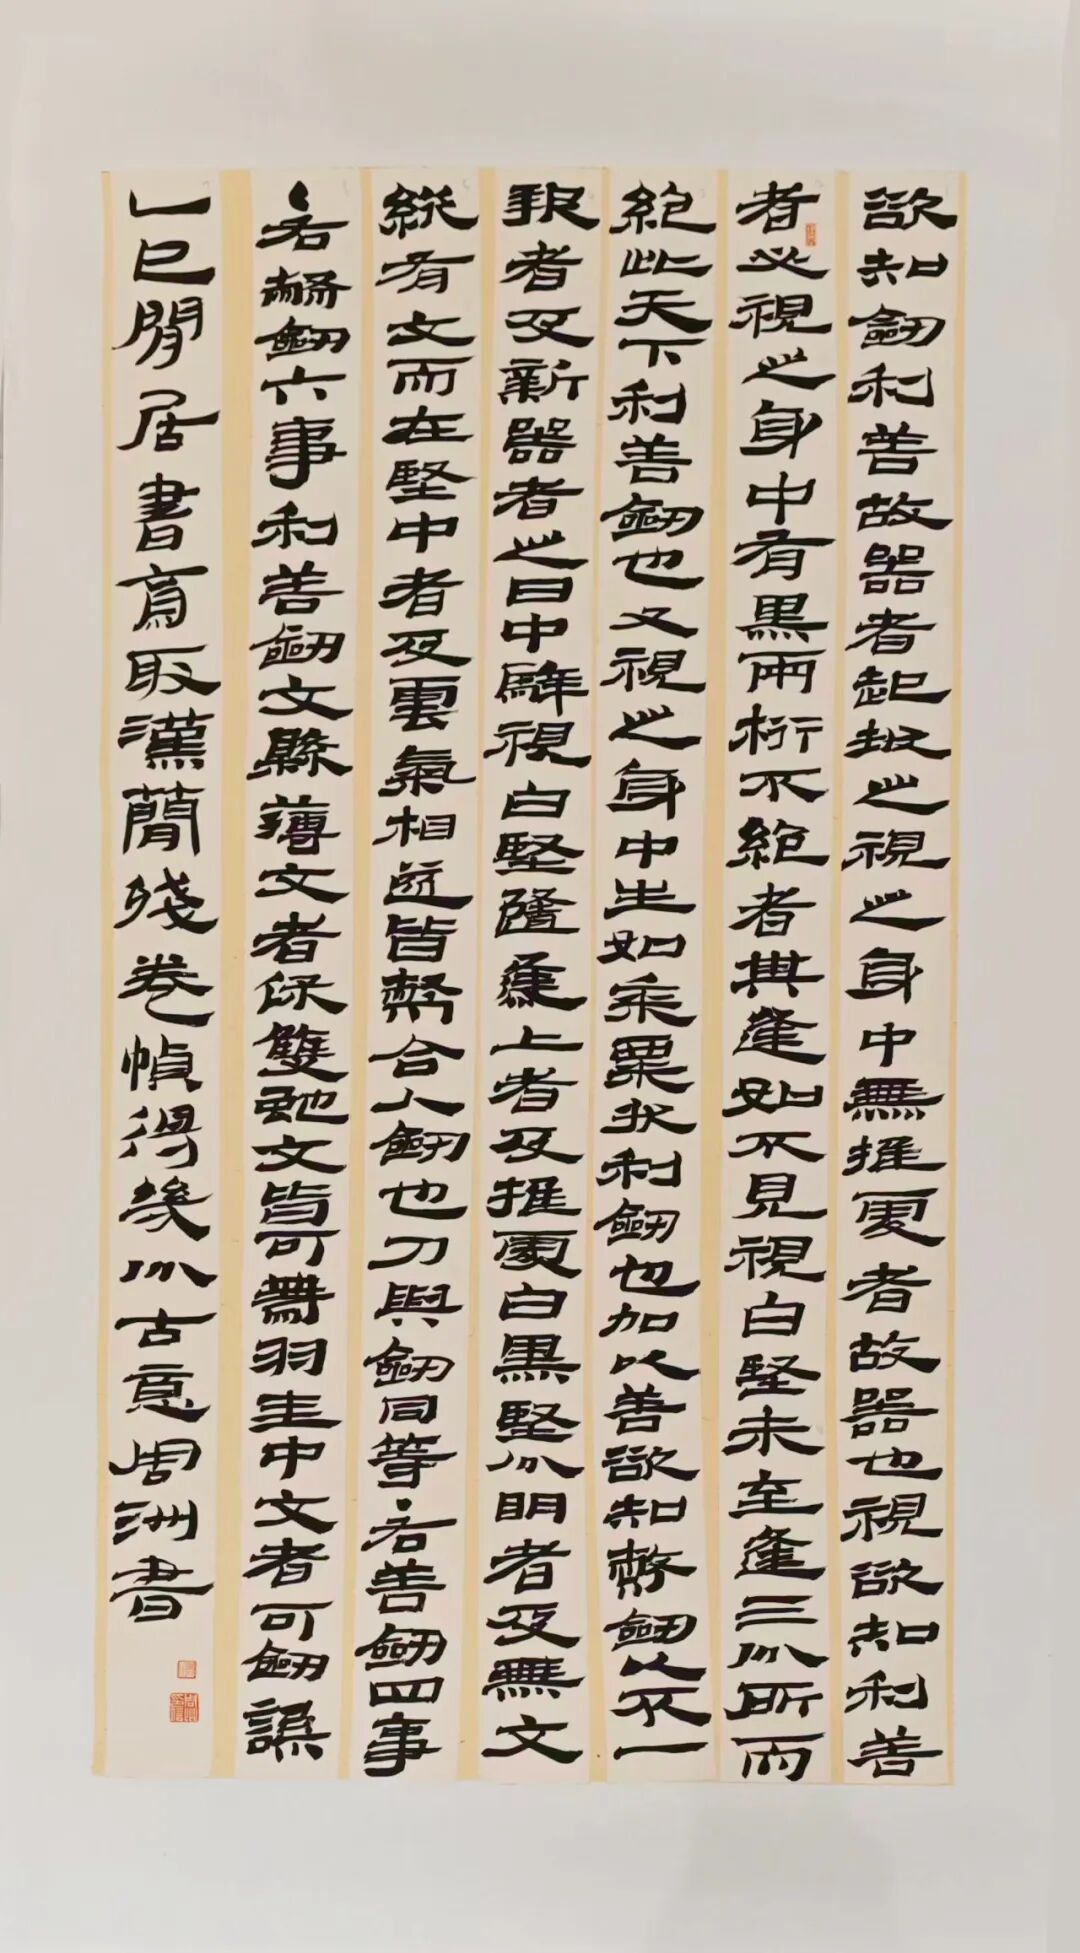 欲知劒利善故器者起拔之視之身中無推處者故器也視欲知利善
者必視之身中有黑兩桁不絕者其逢如不見視白堅未至逢三分所而
絕此天下利善劒也又視之身中生如黍粟狀利劒也加以善欲知幣劒以不一
報者及新器者之日中騂視白堅隨蓬上者及推處白黑堅分明者及無文
縱有文而在堅中者及雲氣相遂皆幣合人劒也刀與劒同等·右善劒四事
·右幣劒六事利善劒文縣薄文者保雙虵文皆可帶羽圭中文者可劒謙
乙巳閒居書齋取漢簡殘卷幀得幾分古意周洲書